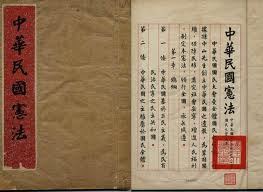 中華民國憲法
中華民國憲法
中華民國國民大會受全體國民
據孫中山先生創立中華民國之遺教為鞏固國
權保障民權奠定社會安寧增進人民福利
制定本憲法頒行全國永矢咸遵
第一章 總綱
第一條 中華民國基於三民主義為民有
民治民享之民主共和國
第二條 中華民國之主權屬於國民全體